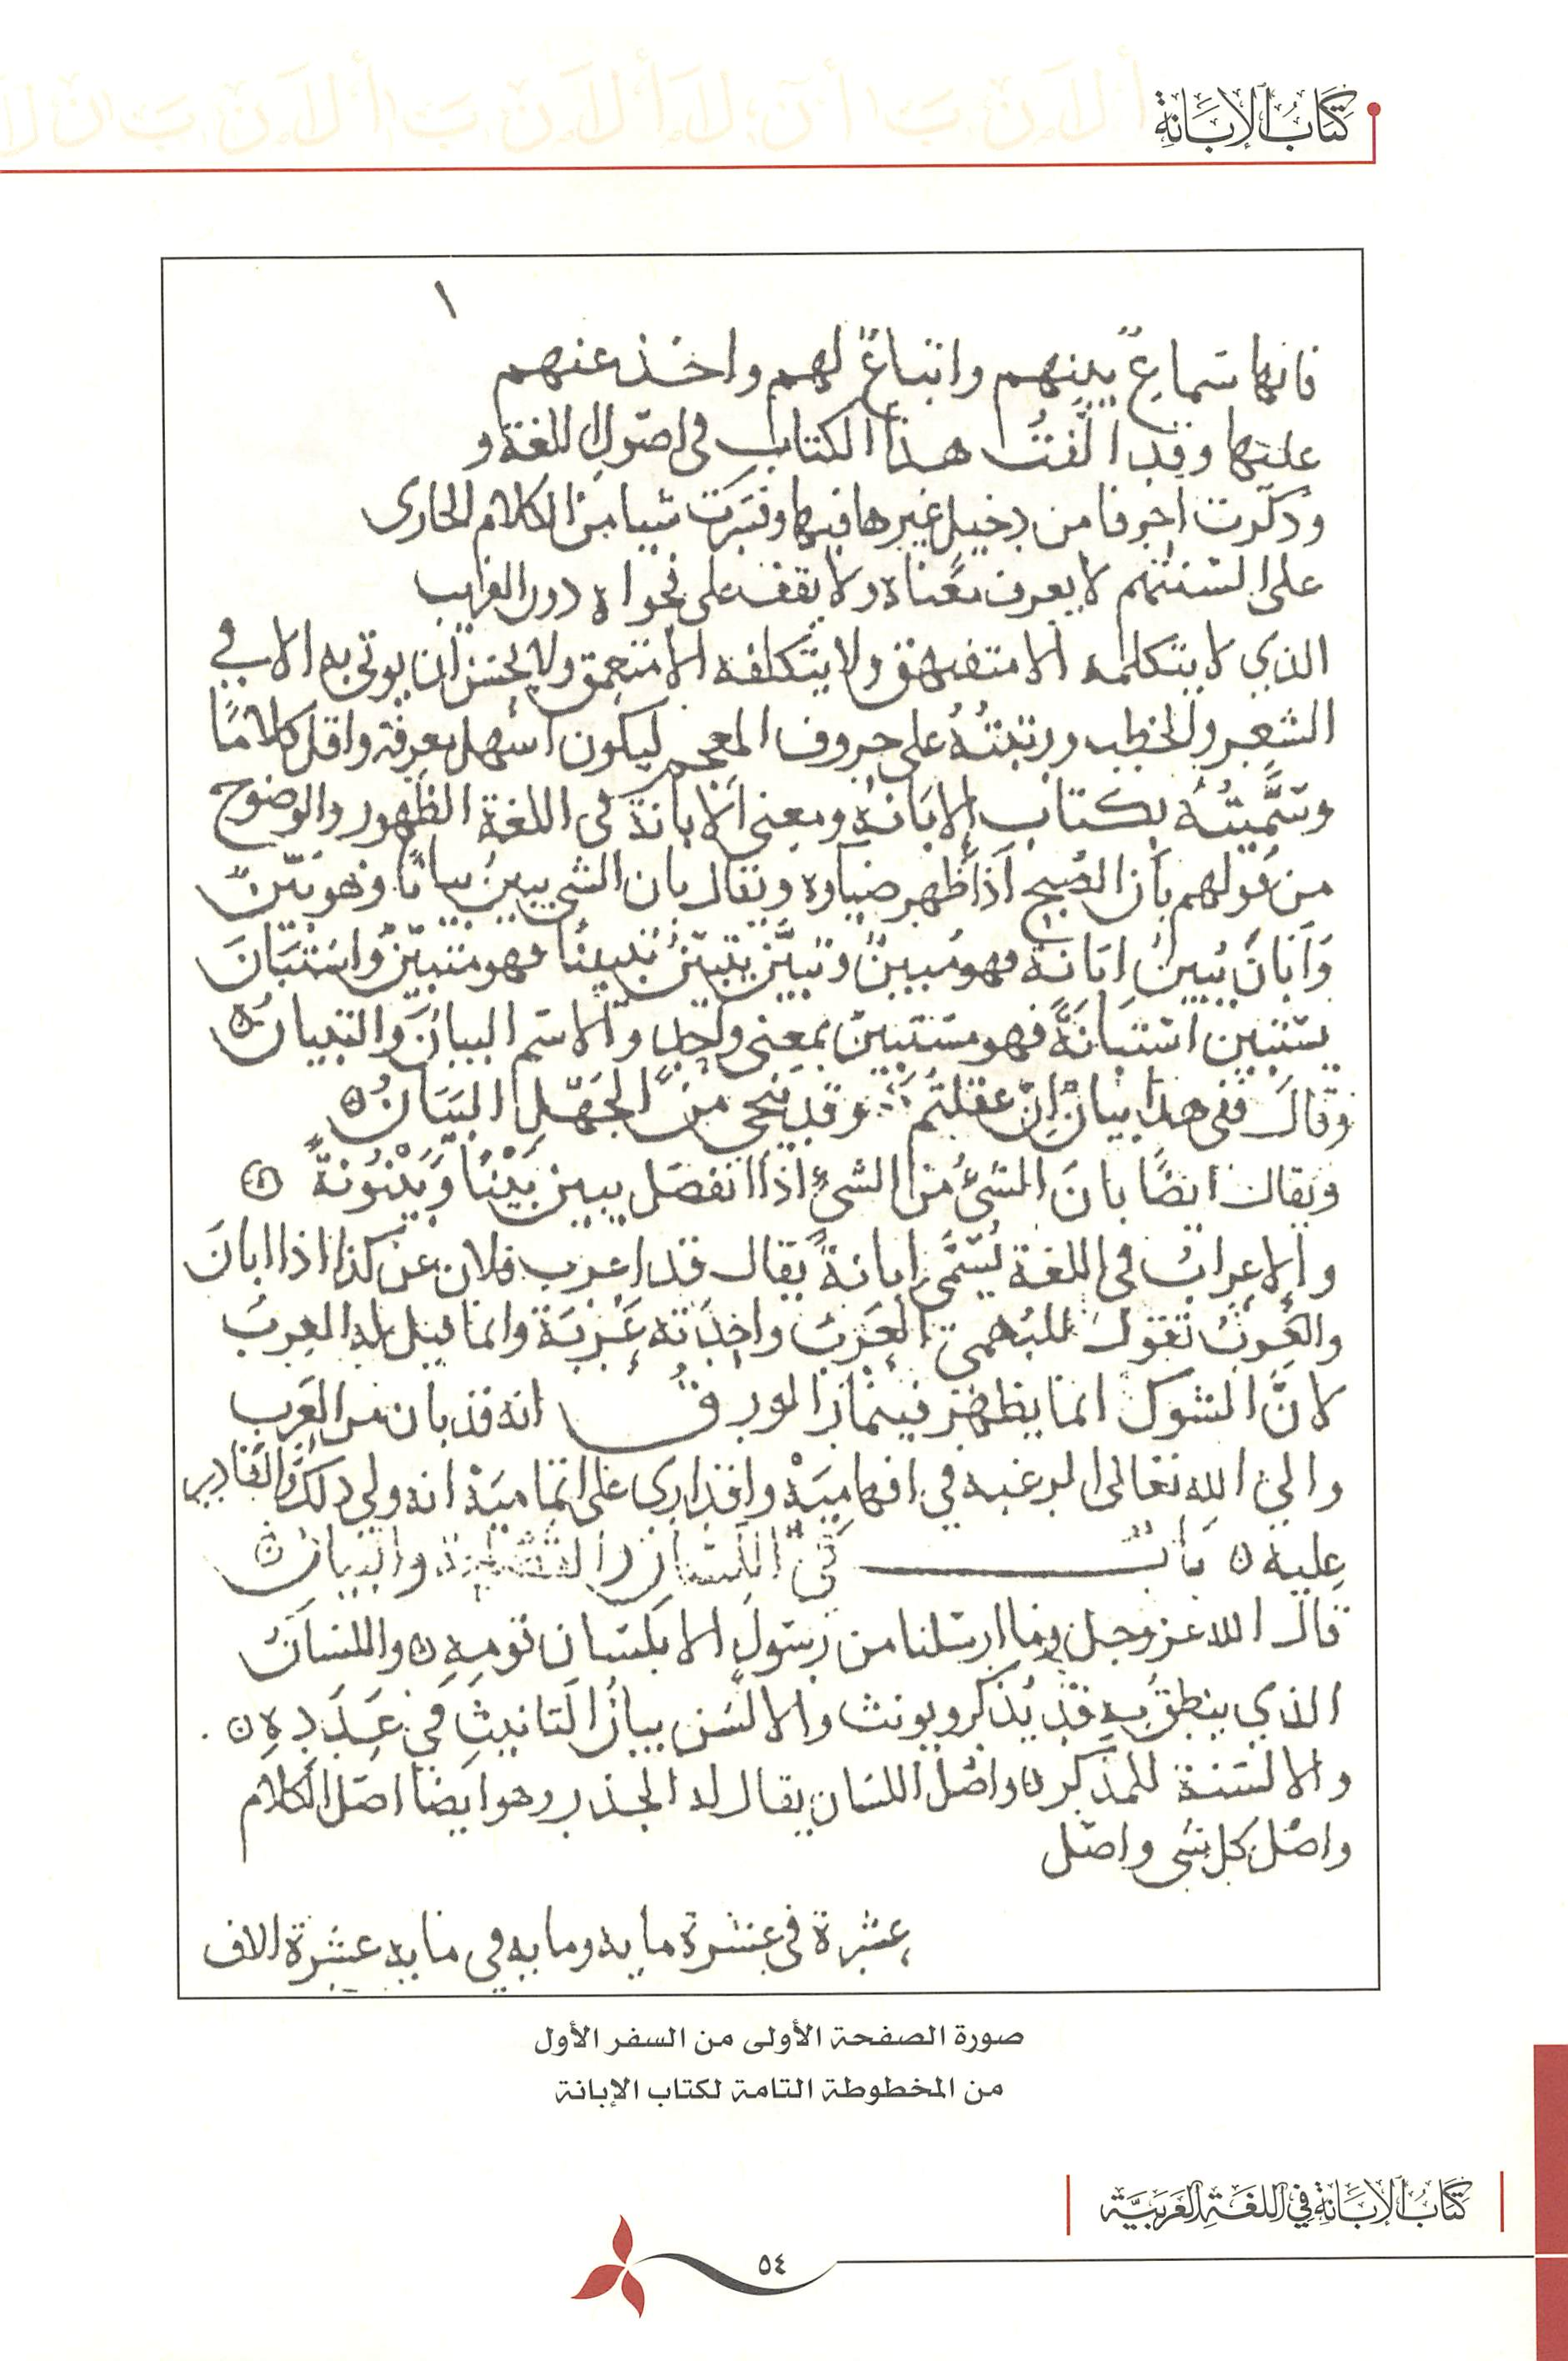 كِتَابُ الإِبَانَةِ
١
فانها سماعٌ بينهم واتباعٌ لهم واخذ عنهم
عليها وقد الّفتُ هذا الكتاب في اصول اللغة و
وذكرت احرفا من دخيل غيرها فيها وفسّرت شيا من الكلام الجارى
على السنتهم لا يعرف معناه ولا يقف على فحواه دون الغريب
الذي لا يتكلمه الا متفيهق ولا يتكلفه الا متعمق ولا يحسن ان يوتى به الا في
الشعر والخطب ورتبتُهُ على حروف المعجم ليكون اسهل معرفة واقل كلامًا
وسَمَّيتُهُ بكتاب الإبَانةِ ومعنى الابانة في اللغة الظهور والوضوح
من قولهم بان الصُبح اذا ظهر ضياوه ويقال بان الشي يبينُ بيانًا وهو بيّنٌ
وَاَبَانَ يُبينُ اِبَانة فهو مُبينٌ وتبيَّن يتبيّنُ تبيينًا فهو متبيّنٌ واسْتَبَانَ
يستبين استبانةً فهو مستبينٌ بمعنى واحدٍ والاسم البيانَ والتبيانُ
وقالَ ففى هذا بيانٌ اِنْ عقلتُم وقد يُنحى من الجَهْلِ البَيَانُ
ويقال ايضًا بانَ الشىُ من الشىِ اذا انفصَل يبين بَيْنًا وَبَيْنُونةً
والإعرابُ في اللغة يُسَمَّى ابانةً يقال قد اعرب فلان عن كذا اذا ابانَ
والعَربُ تقول للبُهمىَ العِرَبُ واحدَته عِرْبَة وانما قيل له العِربُ
لانَّ الشوكَ انما يظهر فينماز الورقُ انه قد بان من العِرَبِ
والى الله تعالى الرغبه في افهاميَهْ واقدارى على اتماميَهْ انه ولي ذلك والقادر
عليه بَابٌ في اللسان والفصاحة والبيان
قالَ الله عز وجل وما ارسلنا من رسول الا بلسان قومِهِ واللسانُ
الذي ينطق بِهِ قد يُذكر ويونث والالسُن بيانُ التانيثِ في عَدَدِهِ
والالسنة للمذكر واصْل اللسَان يقال له الجذر وهو ايضا اصْل الكلام
واصْل كل شى واصْل
عشرة في عشرة مايه ومايه في مايه عشرة الاف
صورة الصفحة الأولى من السفر الأول
من المخطوطة التامة لكتاب الإبانة
كِتَابُ الإِبَانَةِ فِي اللغَةِ العَرَبِيَّةِ
٥٤